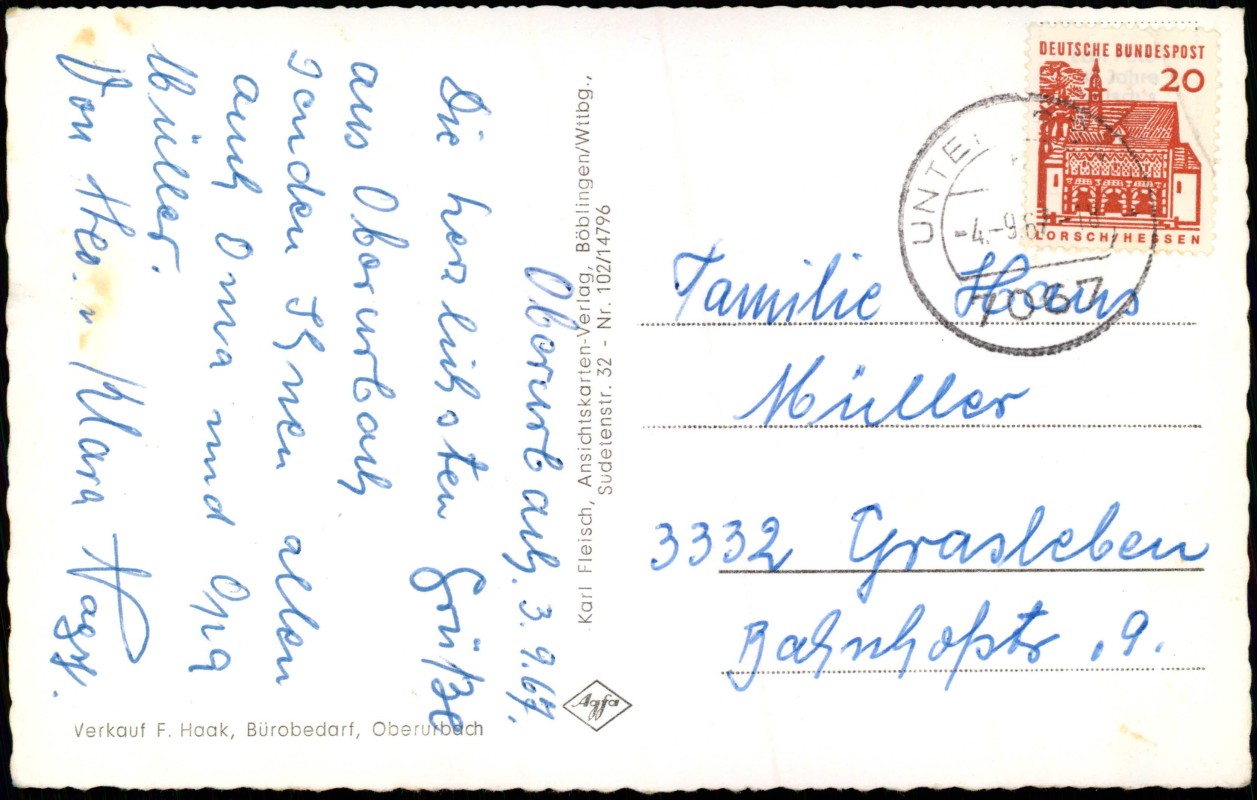 Oberurbach, 3.9.67.
Die herzlichsten Grüße
aus Oberurbach
senden Ihnen allen
auch Oma und Opa
Müller.
Von Theo. u Klara
Verkauf F. Haak, Bürobedarf, Oberurbach
Karl Fleisch, Ansichtskarten-Verlag, Böblingen/Wttbg.,
Sudetenstr. 32 - Nr. 102/14796
Agfa
DEUTSCHE BUNDESPOST
20
LORSCH/HESSEN
UNTE
-4.-9.67
7067
Familie Hans
Müller
3332 Grasleben
Bahnhofstr. 9.